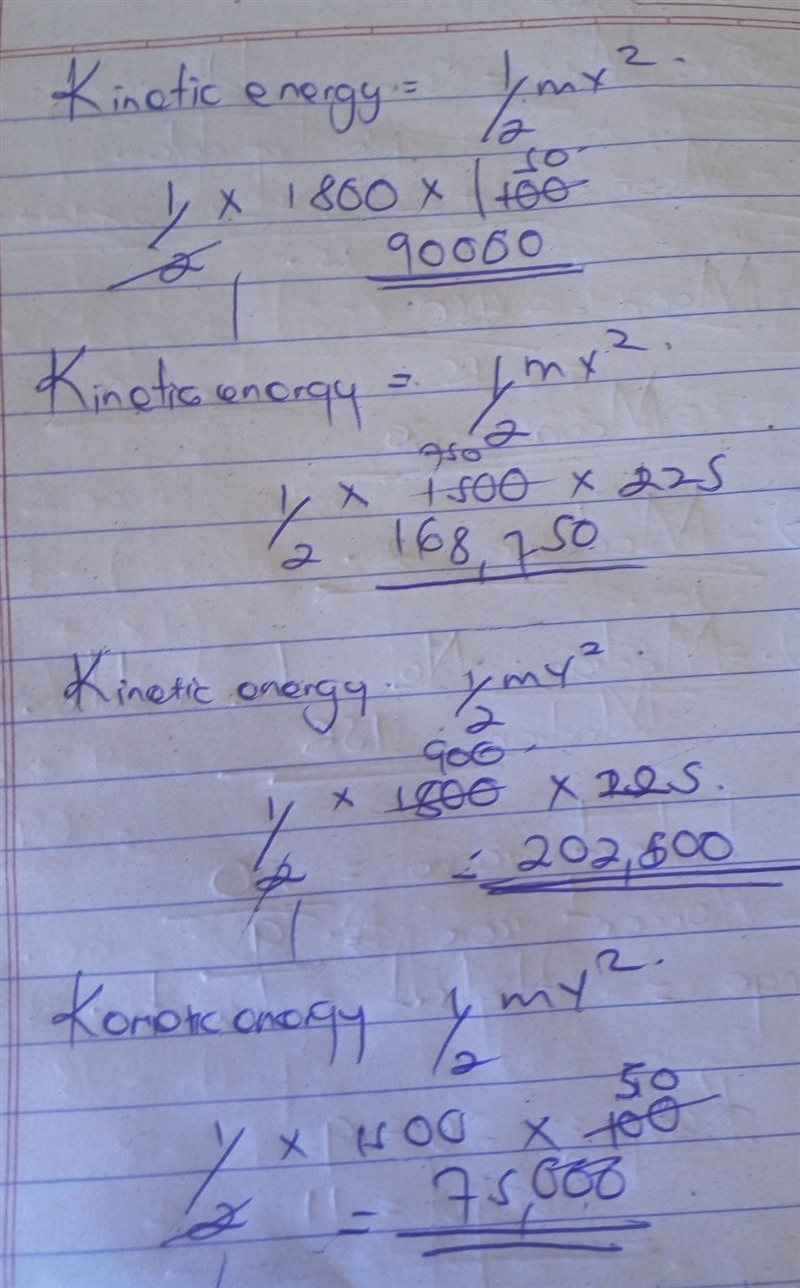 Kinetic energy = 1/2 mv².
1/2 × 1800 × 100 50
1
90000
Kinetic energy = 1/2 mv².
750
1/2 × 1500 × 225
168,750
Kinetic energy. 1/2 mv².
900
1/2 × 1800 × 225.
1
= 202,500
Konotic onorgy 1/2 mv².
50
1/2 × 1500 × 100
= 75,000
1